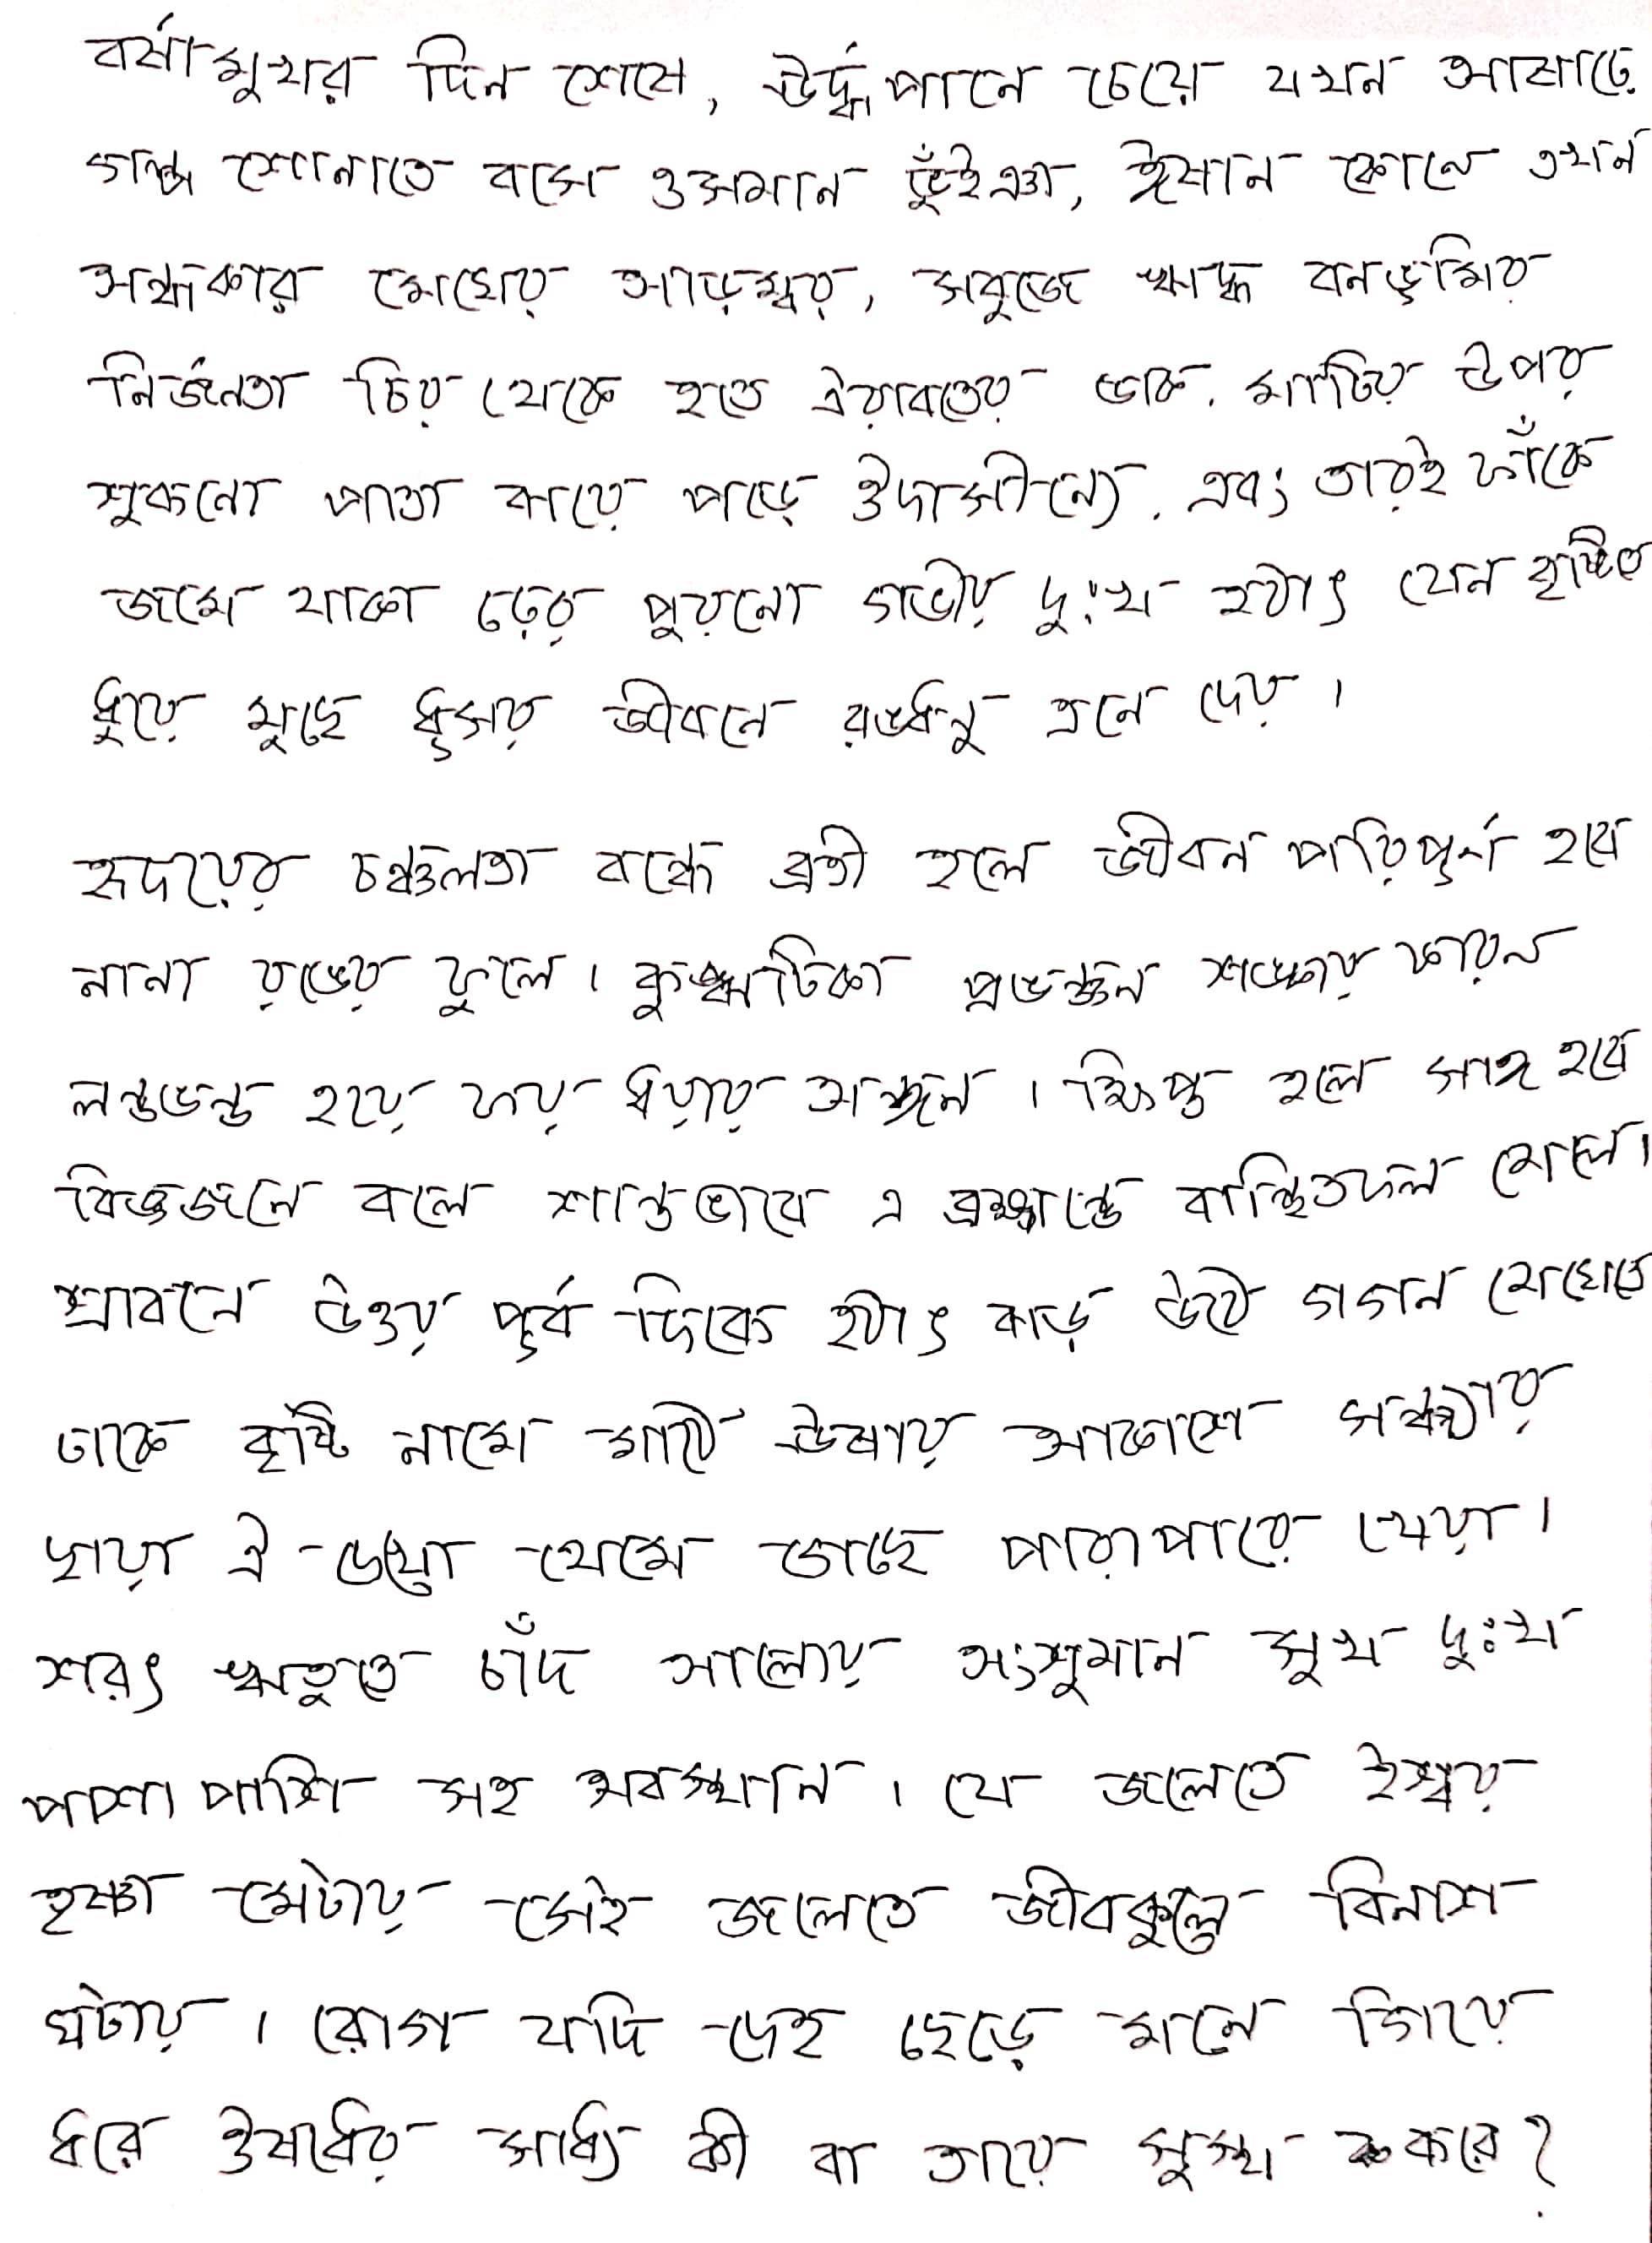 বর্ষামুখর দিন শেষে, ঊর্দ্ধপানে চেয়ে যখন আষাঢ়ে
গল্প শোনাতে বসে ওসমান ভুঁইঞা, ঈষান কোনে তখন
অন্ধকার মেঘের আড়ম্বর, সবুজে ঋদ্ধ বনভূমির
নির্জনতা চিরে থেকে হতে ঐরাবতের ডাক. মাটির উপর
শুকনো পাতা ঝরে পড়ে ঔদাসীন্যে. এবং তারই ফাঁকে
জমে থাকা ঢের পুরনো গভীর দুঃখ হঠাৎ যেন বৃষ্টিতে
ধুয়ে মুছে ধূসর জীবনে রঙধনু এনে দেয় ।
হৃদয়ের চঞ্চলতা বন্ধে ব্রতী হলে জীবন পরিপূর্ণ হবে
নানা রঙের ফুলে । কুঞ্ঝটিকা প্রভঞ্জন শঙ্কার কারন
লন্ডভন্ড হয়ে যায় ধরার অঙ্গন । ক্ষিপ্ত হলে সাঙ্গ হবে
বিজ্ঞজনে বলে শান্তভাবে এ ব্রহ্মান্ডে বাঞ্ছিতফল মেলে ।
শ্রাবনে উত্তর পূর্ব দিকে হঠাৎ ঝড় উঠে গগন মেঘেতে
ঢাকে বৃষ্টি নামে মাঠে ঊষার আকাশে সন্ধ্যার
ছায়া ঐ দেখো থেমে আছে পারাপারে খেয়া ।
শরৎ ঋতুতে চাঁদ আলোয় অংশুমান সুখ দুঃখ
পাশাপাশি সহ অবস্থান । যে জলেতে ঈশ্বর
তৃষ্ণা মেটায় সেই জলেতে জীবকুলে বিনাশ
ঘটায় । রোগ যদি দেহ ছেড়ে মনে গিয়ে
ধরে ঔষধের সাধ্যি কী বা তারে সুস্থ্য করে ?